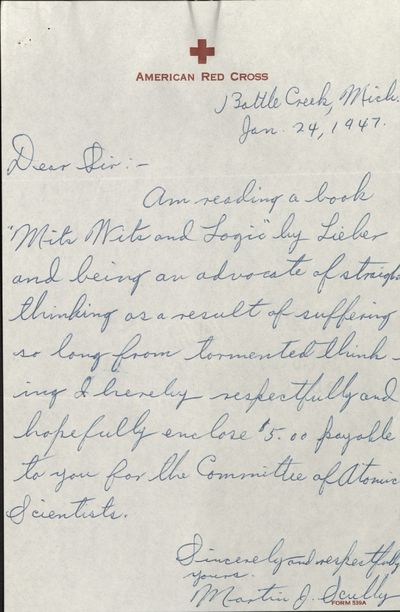 AMERICAN RED CROSS
Battle Creek, Mich.
Jan. 24, 1947.
Dear Sir:-
Am reading a book
"Mits Wits and Logic" by Lieber
and being an advocate of straight
thinking as a result of suffering
so long from tormented think-
ing I hereby respectfully and
hopefully enclose $5.00 payable
to you for the Committee of Atomic
Scientists.
Sincerely and respectfully
yours.
Martin J. Scully
FORM 539A